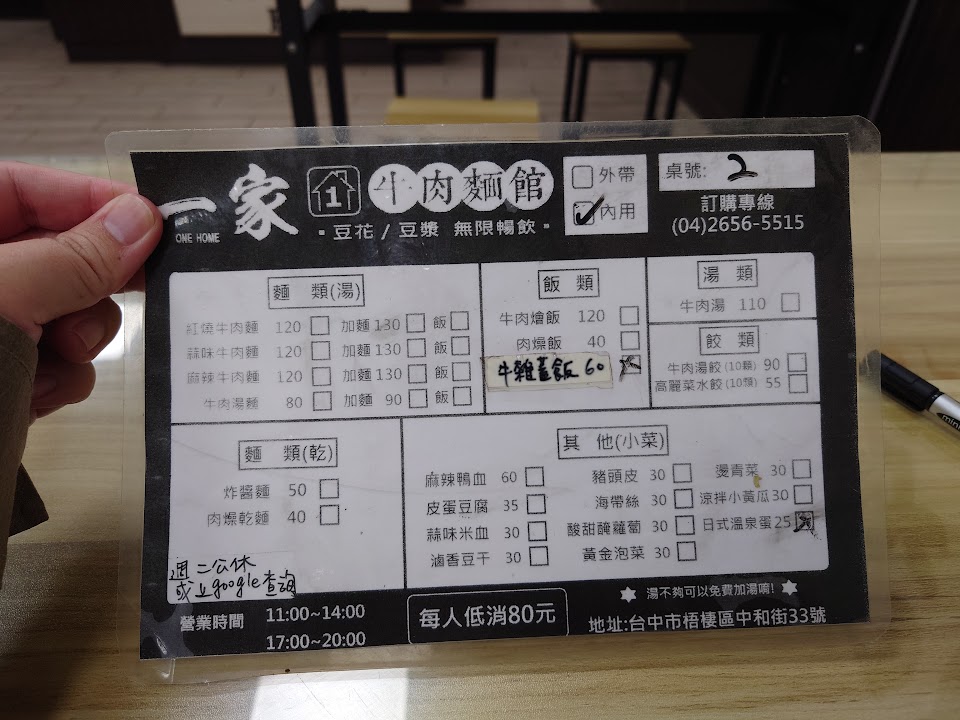 一家
ONE HOME
1
牛肉麵館
·豆花/豆漿 無限暢飲·
外帶
內用
桌號: 2
訂購專線
(04)2656-5515
麵 類(湯)
紅燒牛肉麵 120 加麵130 飯
蒜味牛肉麵 120 加麵130 飯
麻辣牛肉麵 120 加麵130 飯
牛肉湯麵 80 加麵 90 飯
飯 類
牛肉燴飯 120
肉燥飯 40
牛雜蓋飯 60
湯 類
牛肉湯 110
餃 類
牛肉湯餃(10顆) 90
高麗菜水餃(10顆) 55
麵 類(乾)
炸醬麵 50
肉燥乾麵 40
週二公休
或上google查詢
其 他(小菜)
麻辣鴨血 60 豬頭皮 30 燙青菜 30
皮蛋豆腐 35 海帶絲 30 涼拌小黃瓜30
蒜味米血 30 酸甜醃蘿蔔 30 日式溫泉蛋25
滷香豆干 30 黃金泡菜 30
營業時間 11:00~14:00
17:00~20:00
每人低消80元
湯不夠可以免費加湯唷!
地址:台中市梧棲區中和街33號
mini